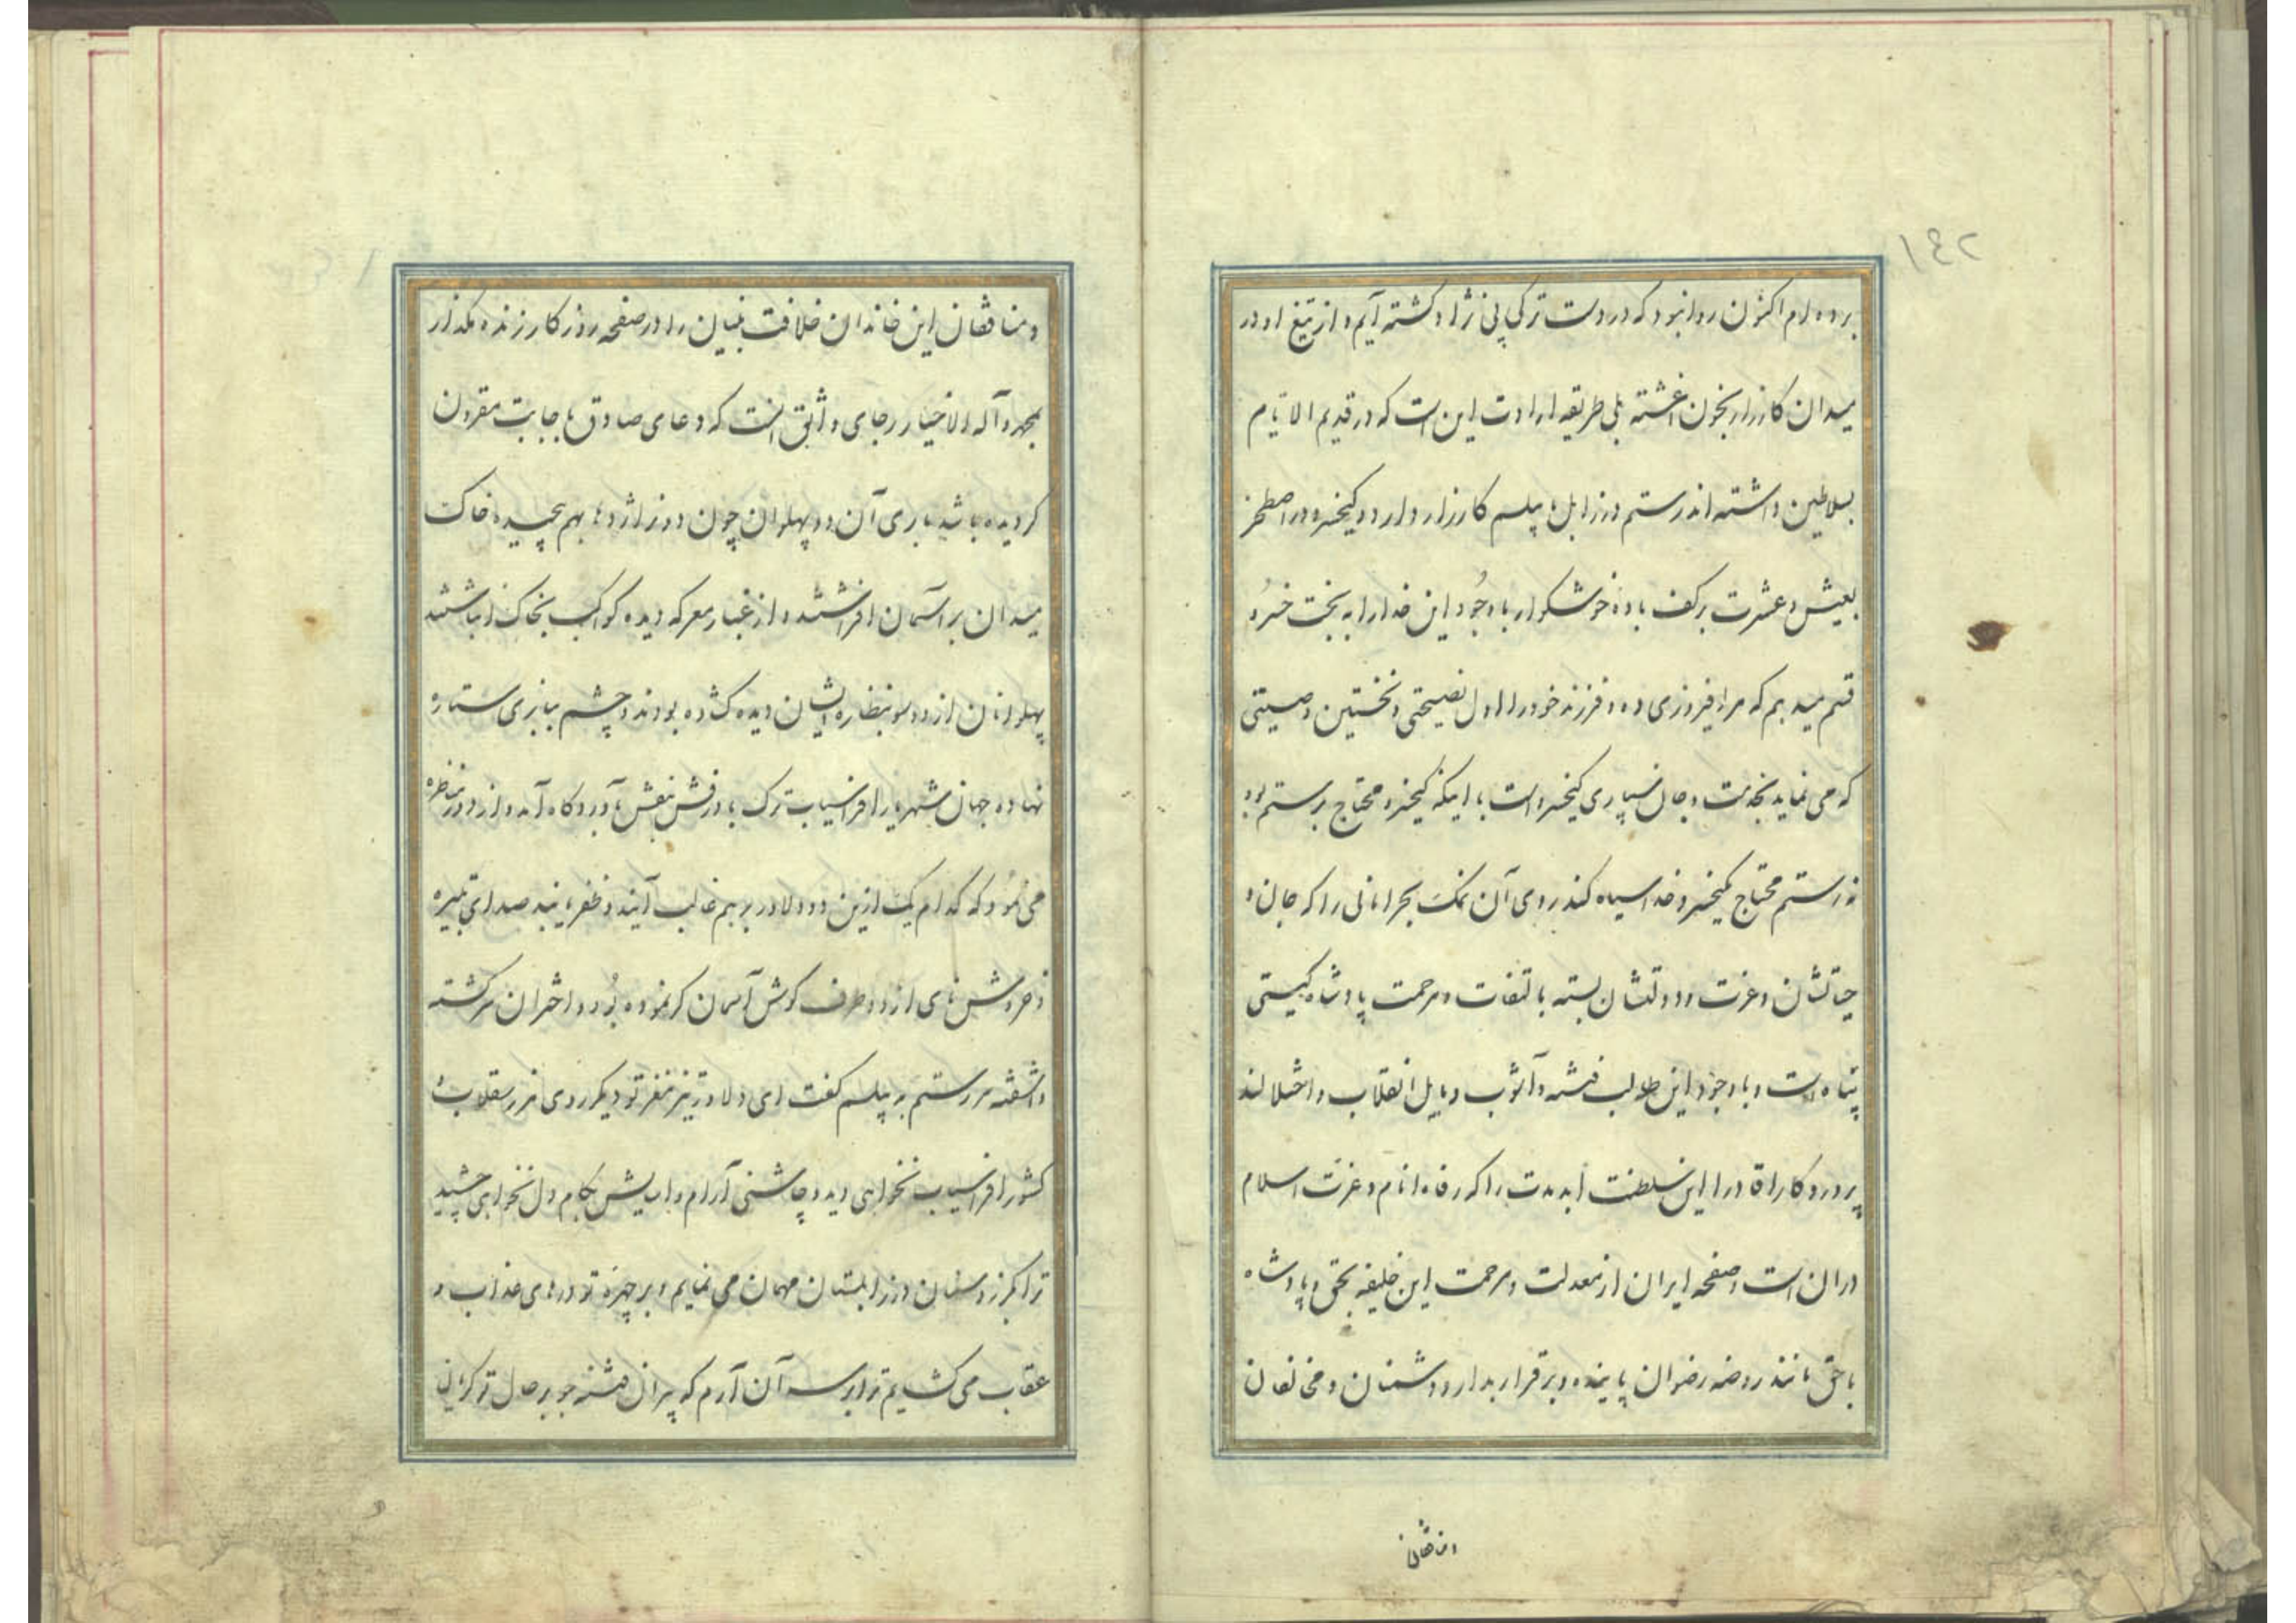 ۱۴۲
برده ام اکنون روا نبود که در دست ترکی پی نژاد کشته آیم و از تیغ او در
میدان کارزار بخون اغشته بلی طریقه ارادت این است که در قدیم الایام
بسلاطین داشته اند رستم در زابل با پیلسم کارزار دارد و کیخسرو در اصطخر
بعیش و عشرت بر کف باده خوشکوار با وجود این خدا را به بخت خسرو
قسم میدهم که مرا فیروزی ده و فرزند خود را اول نصیحتی و نخستین وصیتی
که می نماید بخدمت و جان سپاری کیخسرو است با اینکه کیخسرو محتاج برستم بود
نه رستم محتاج کیخسرو خدا سیاه کند روی آن نمک بحرامانی را که جان و
حیاتشان و عزت و دولتشان بسته بالتفات و مرحمت پادشاه کیتی
پناه است و با وجود این طالب فتنه و آشوب و مایل انقلاب و اختلالند
پرورد کارا قادرا این سلطنت ابدمدت را که رفاه انام و عزت اسلام
در ان است و صفحه ایران از معدلت و مرحمت این خلیفه بحق و پادشاه
با حق مانند روضه رضوان پاینده و برقرار بدار و دشمنان و مخالفان
و منافقان
و منافقان این خاندان خلافت بنیان را در صفحه روز کار زنده مکذار
بمحمد و آله الاخیار رجای واثق انست که دعای صادق باجابت مقرون
کردیده باشد باری آن دو پهلوان چون دو نر اژدها بهم پیچیده خاک
میدان بر آسمان افراشتند و از غبار معرکه دیده کواکب بخاک انباشتند
پهلوانان از دو سو بنظاره ایشان دیده کشاده بودند و چشم ببازی ستاره
نهاده جهان شهریار افراسیاب ترک با درفش بنفش بآوردکاه آمد و از دور نظاره
می نمود که کدام یک ازین دو دلاور بر هم غالب آیند و ظفر یابند صدای تبیره
و خروش نای از دو طرف کوش آسمان کر نموده بود و اختران سر کشته
و اشفته سر رستم به پیلسم کفت ای دلاور تیز مغز تو دیگر روی مرز سقلاب و
کشور افراسیاب نخواهی دید و چاشنی آرام و اسایش بکام دل نخواهی چشید
ترا بکرز و سنان در زابلستان مهمان می نمایم و بر چهره تو درهای عذاب و
عقاب می کشایم ترا بر سر آن آرم که پیران فتنه جو بر حال تو کریان